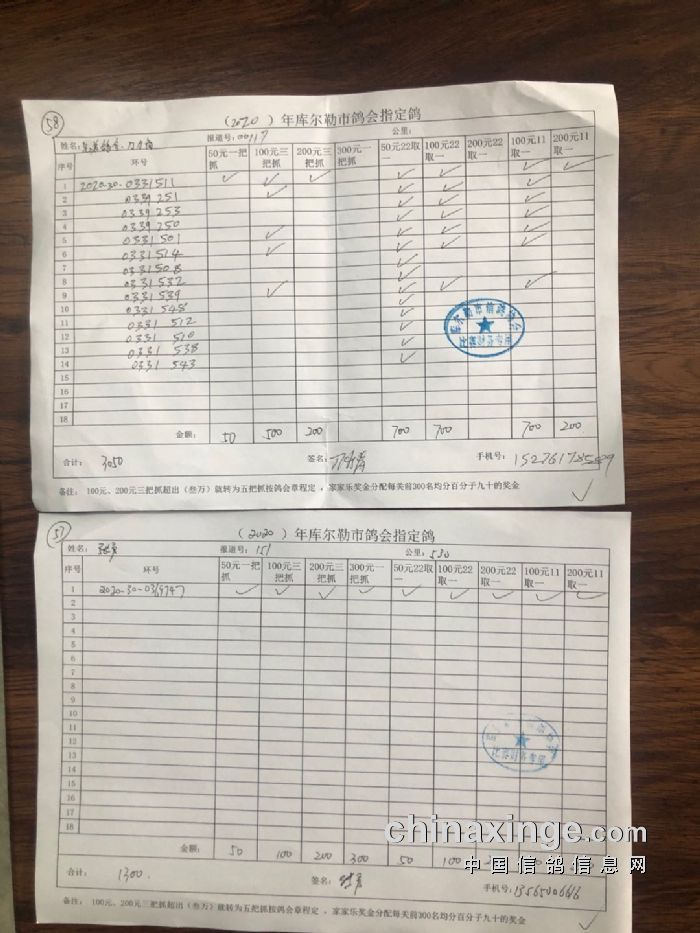 58
(2020) 年库尔勒市鸽会指定鸽
姓名: 报道号: 00117 公里:
序号 环号 50元一把抓 100元三把抓 200元三把抓 300元一把抓 50元22取一 100元22取一 200元22取一 100元11取一 200元11取一
1 2020-30-0331511 ✓ ✓ ✓ ✓ ✓ ✓ ✓
2 0339251
3 0339253
4 0339250
5 0331501
6 0331514
7 0331508
8 0331532
9 0331539
10 0331548
11 0331 512
12 0331 510
13 0331 538
14 0331 543
15
16
17
18
金额: 50 500 200 700 700 700 200
合计: 3050 签名: 手机号:
备注: 100元、200元三把抓超出(叁万)就转为五把抓按鸽会章程定,家家乐奖金分配每关前300名均分百分子九十的奖金
57
(2020) 年库尔勒市鸽会指定鸽
姓名: 报道号: 151 公里: 530
序号 环号 50元一把抓 100元三把抓 200元三把抓 300元一把抓 50元22取一 100元22取一 200元22取一 100元11取一 200元11取一
1 ✓ ✓ ✓ ✓ ✓ ✓ ✓ ✓ ✓
2
3
4
5
6
7
8
9
10
11
12
13
14
15
16
17
18
金额: 50 100 200 300 50 100
合计: 1300. 签名: 手机号:
备注: 100元、200元三把抓超出(叁万)就转为五把抓按鸽会章程定,家家乐奖金分配每关前300名均分百分子九十的奖金
chinaxinge.com
中国信鸽信息网